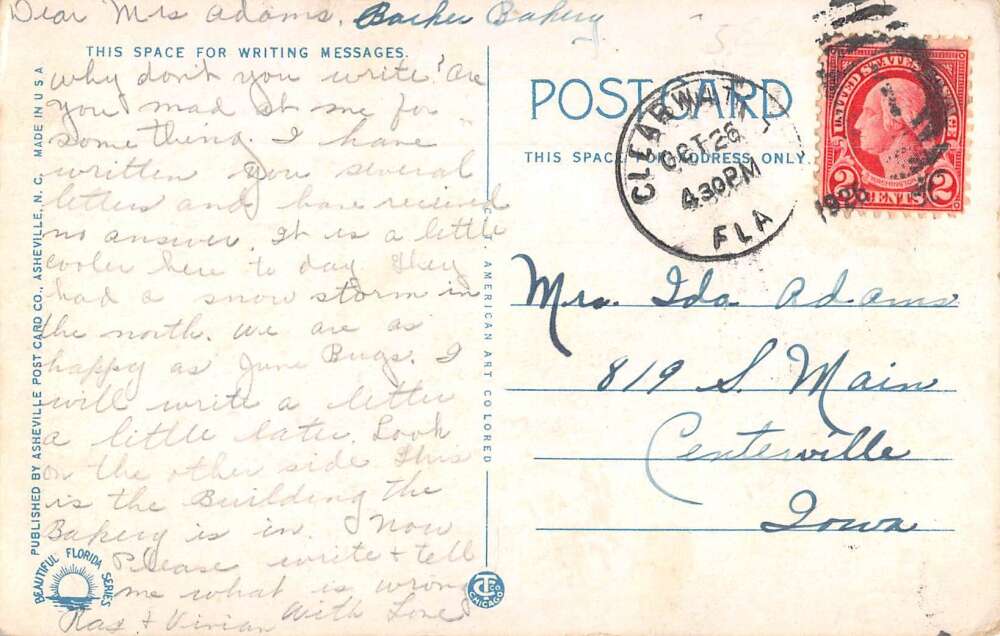 Dear Mrs Adams. Barker Bakery
THIS SPACE FOR WRITING MESSAGES.
why don't you write? Are
you mad at me for
something I have
written you several
letters and have recived
no answer. It is a little
cooler here to day They
had a snow storm in
the north. we are as
happy as June Bugs. I
will write a letter
a little later. Look
on the other side This
is the Building the
Bakery is in. Now
Please write + tell
me what is wrong
With Love
Ras + Vivian
PUBLISHED BY ASHEVILLE POST CARD CO., ASHEVILLE, N. C. MADE IN U S A
BEAUTIFUL FLORIDA SERIES
C. T. AMERICAN ART COLORED
CT CO CHICAGO
POST CARD
THIS SPACE FOR ADDRESS ONLY.
CLEARWATER
OCT 28
4.30PM
FLA
UNITED STATES POSTAGE
WASHINGTON
2 CENTS 2
Mrs. Ida Adams
819 S. Main
Centerville
Iowa